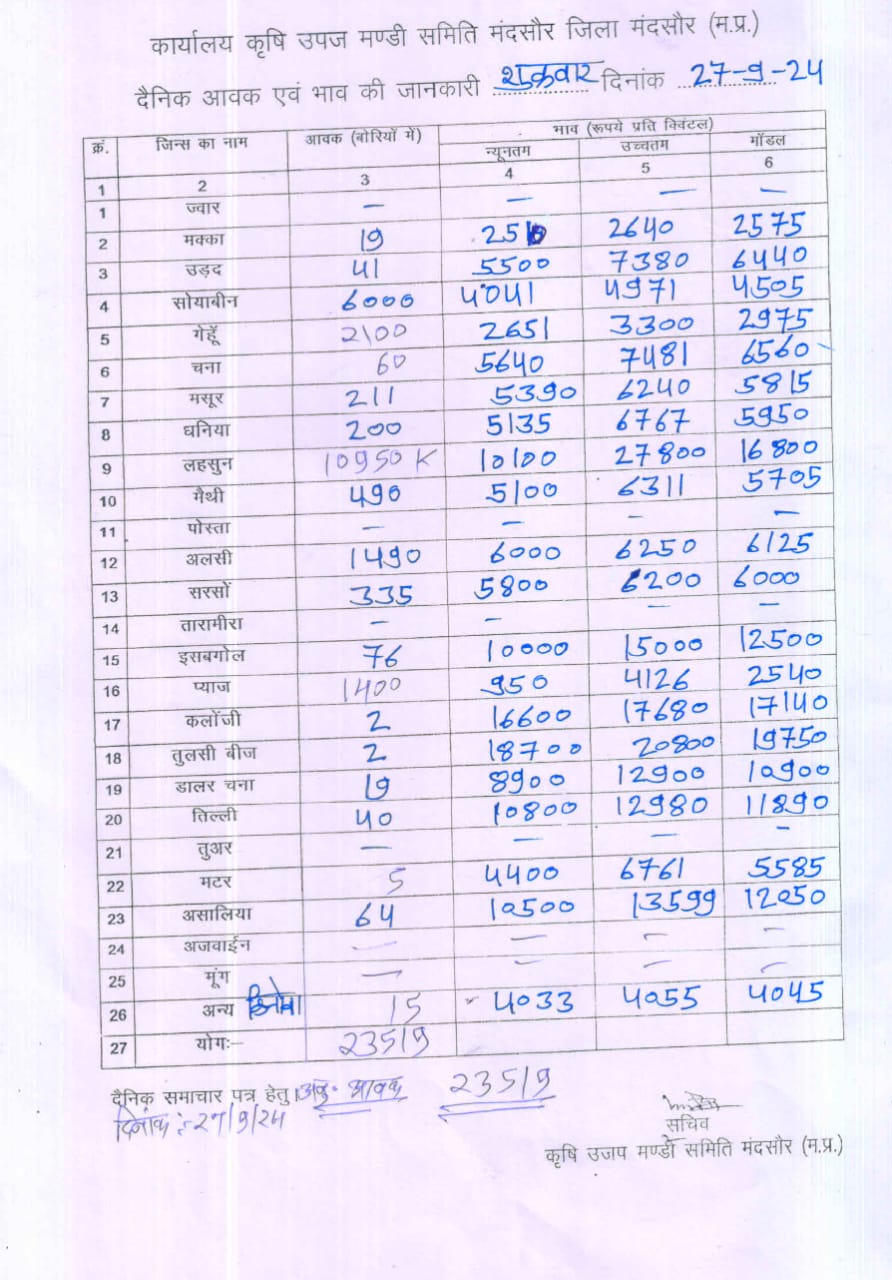 कार्यालय कृषि उपज मण्डी समिति मंदसौर जिला मंदसौर (म.प्र.)
दैनिक आवक एवं भाव की जानकारी शुक्रवार दिनांक 27-9-24
क्रं. जिन्स का नाम आवक (बोरियों में) भाव (रूपये प्रति क्विंटल)
न्यूनतम उच्चतम मॉडल
1 2 3 4 5 6
1 ज्वार — — — —
2 मक्का 19 2510 2640 2575
3 उड़द 41 5500 7380 6440
4 सोयाबीन 6000 4041 4971 4505
5 गेहूँ 2100 2651 3300 2975
6 चना 60 5640 7481 6560
7 मसूर 211 5390 6240 5815
8 धनिया 200 5135 6767 5950
9 लहसुन 10950 K 10100 27800 16800
10 मैथी 490 5100 6311 5705
11 पोस्ता — — — —
12 अलसी 1490 6000 6250 6125
13 सरसों 335 5800 6200 6000
14 तारामीरा — — — —
15 इसबगोल 76 10000 15000 12500
16 प्याज 1400 950 4126 2540
17 कलोंजी 2 16600 17680 17140
18 तुलसी बीज 2 18700 20800 19750
19 डालर चना 19 8900 12900 10900
20 तिल्ली 40 10800 12980 11890
21 तुअर — — — —
22 मटर 5 4400 6761 5585
23 असालिया 64 10500 13599 12050
24 अजवाईन — — — —
25 मूंग — — — —
26 अन्य 15 4033 4055 4045
27 योगः— 23519
दैनिक समाचार पत्र हेतु आवक 23519
दिनांक :- 27/9/24
सचिव
कृषि उजप मण्डी समिति मंदसौर (म.प्र.)